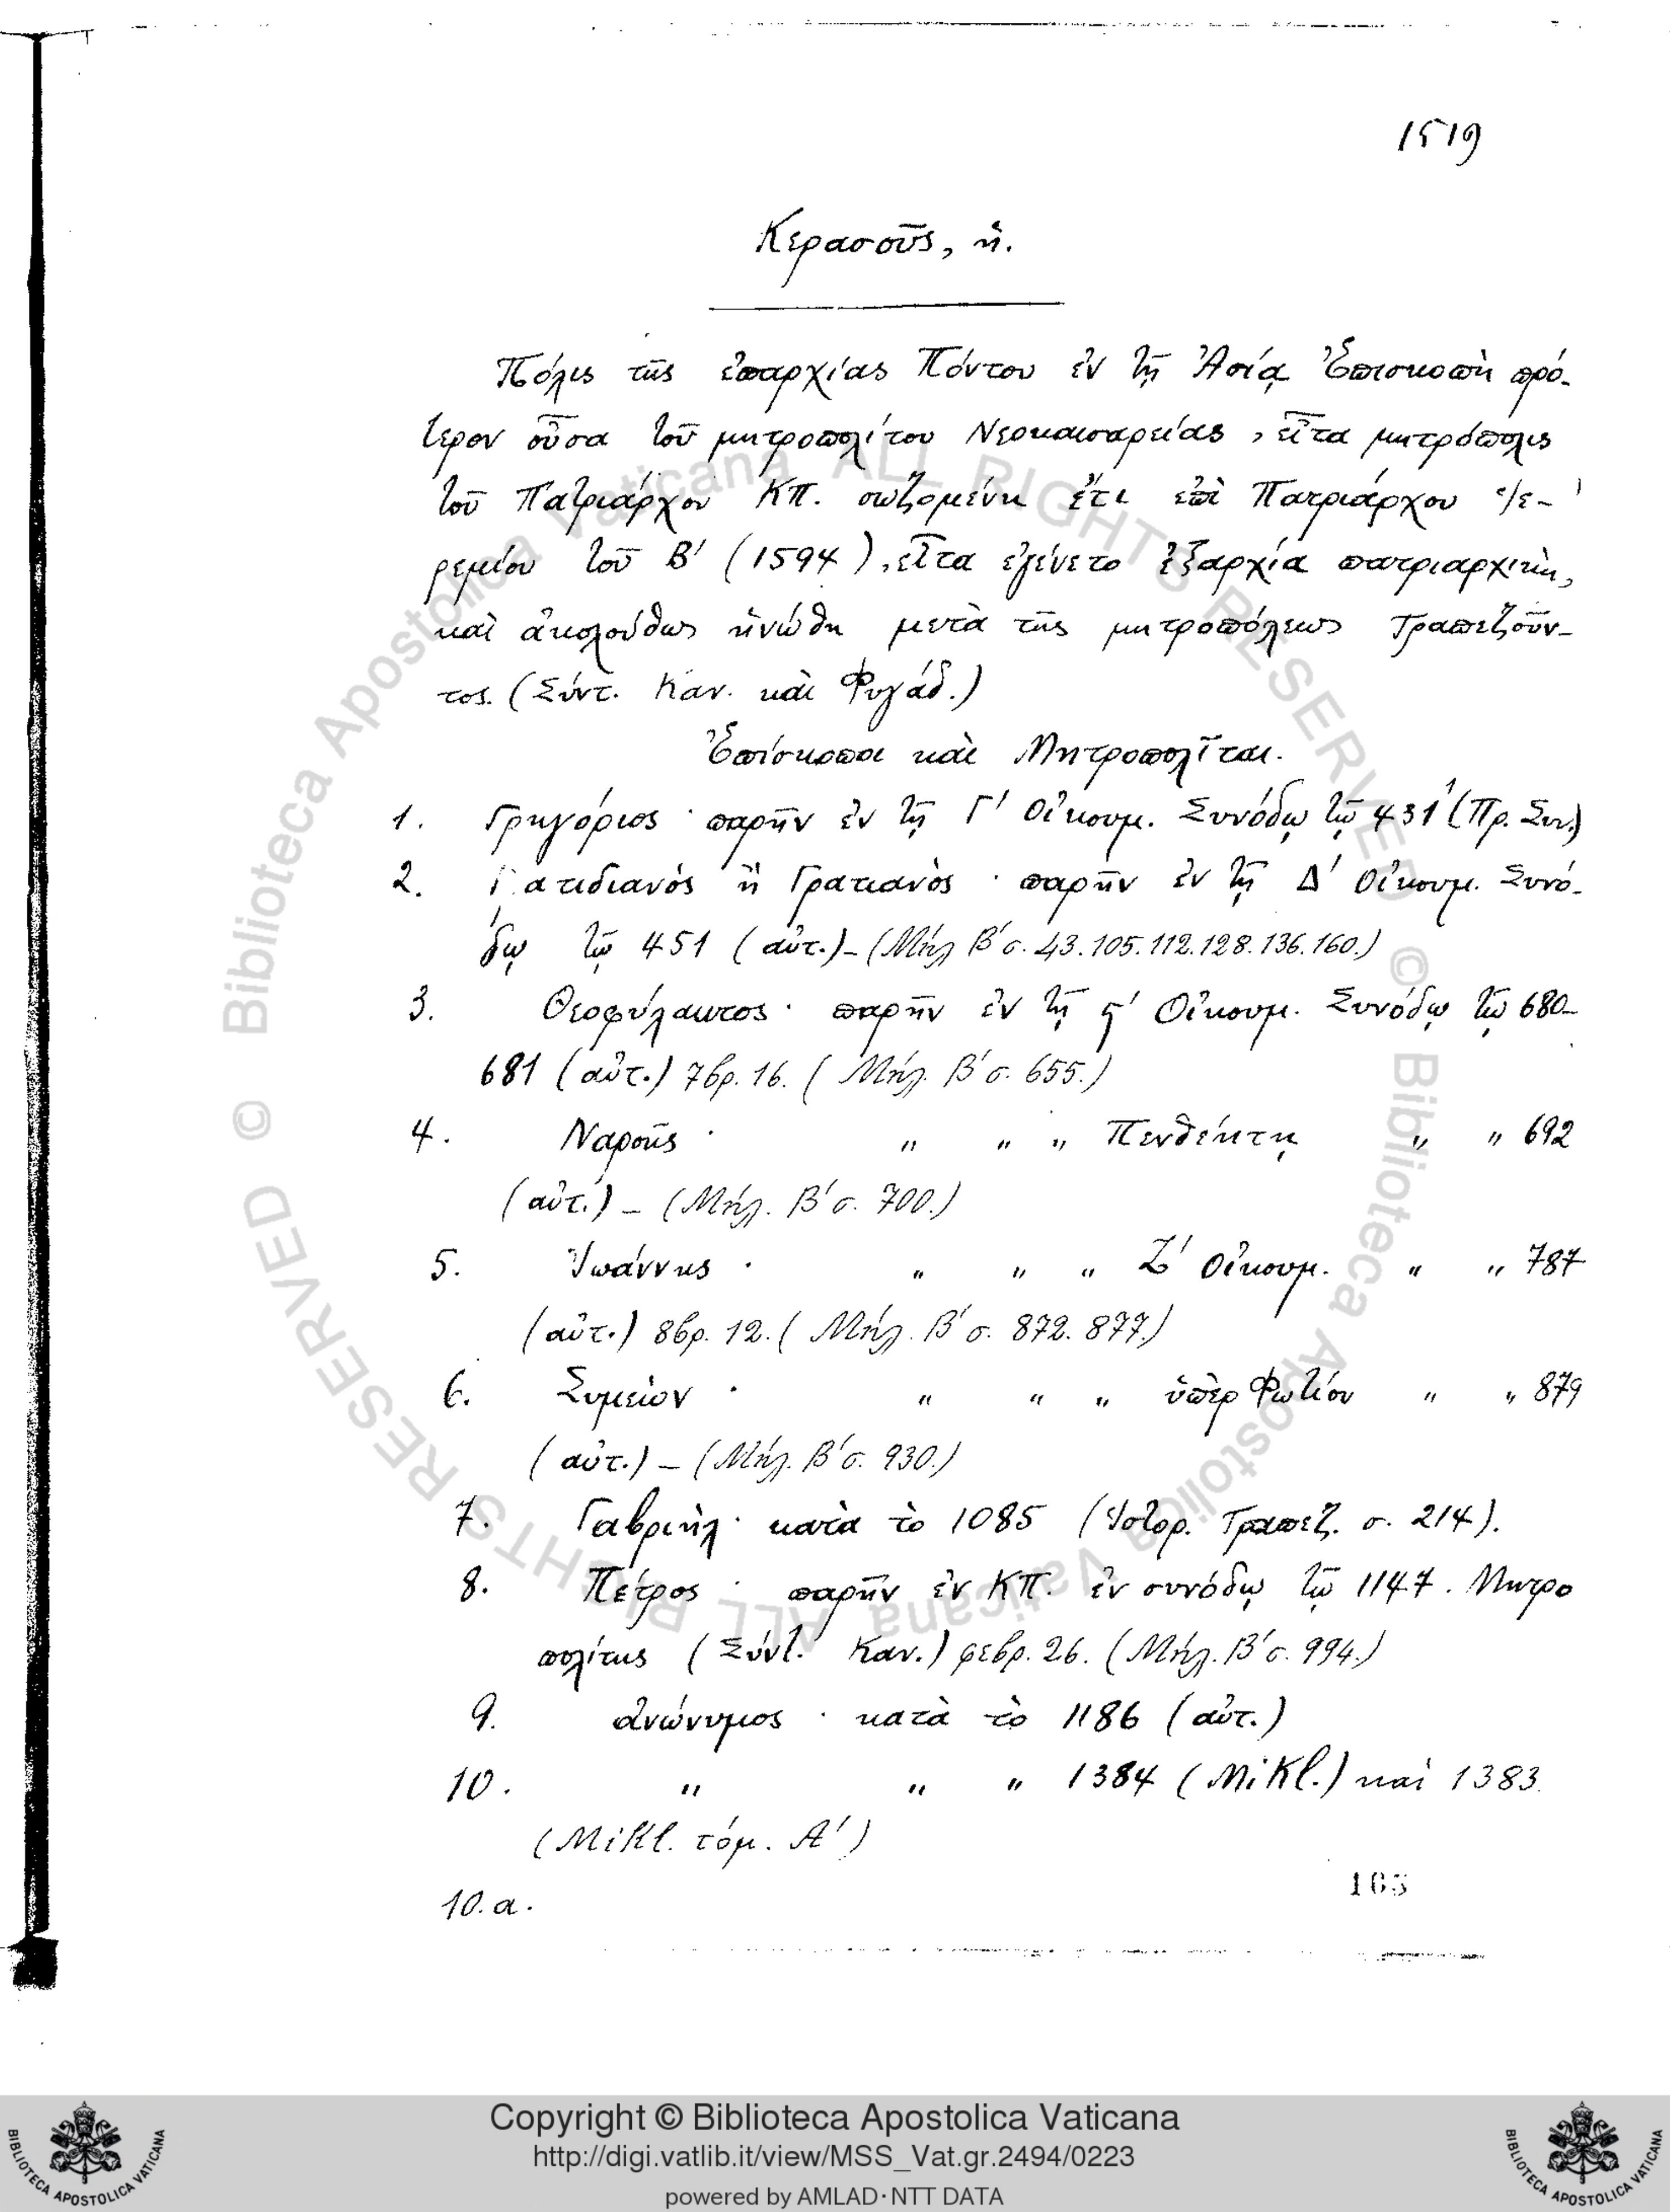 1519
Κερασοῦς, ἡ.
Πόλις τῆς ἐπαρχίας Πόντου ἐν τῇ Ἀσίᾳ Ἐπισκοπὴ πρό-
τερον οὖσα τοῦ μητροπολίτου Νεοκαισαρείας, εἶτα μητρόπολις
τοῦ Πατριάρχου ΚΠ. σωζομένη ἔτι ἐπὶ Πατριάρχου Ἱε-
ρεμίου τοῦ Β' (1594), εἶτα ἐγένετο ἐξαρχία πατριαρχικὴ,
καὶ ἀκολούθως ἡνώθη μετὰ τῆς μητροπόλεως Τραπεζοῦν-
τος. (Σύντ. Καν. καὶ Φυγάδ.)
Ἐπίσκοποι καὶ Μητροπολῖται.
1. Γρηγόριος · παρῆν ἐν τῇ Γ' Οἰκουμ. Συνόδῳ τῷ 431 (Πρ. Συν.)
2. Γρατιδιανός ἢ Γρατιανὸς · παρῆν ἐν τῇ Δ' Οἰκουμ. Συνό-
δῳ τῷ 451 (αὐτ.) – (Μήλ Β' σ. 43.105.112.128.136.160.)
3. Θεοφύλακτος · παρῆν ἐν τῇ ϛ' Οἰκουμ. Συνόδῳ τῷ 680–
681 (αὐτ.) 7βρ. 16. (Μήλ. Β' σ. 655.)
4. Ναρσῆς · " " " Πενθέκτῃ " " 692
(αὐτ.) – (Μήλ. Β' σ. 700.)
5. Ἰωάννης · " " " Ζ' Οἰκουμ. " " 787
(αὐτ.) 8βρ. 12. (Μήλ. Β' σ. 872. 877.)
6. Συμεὼν · " " " ὑπὲρ Φωτίου " " 879
(αὐτ.) – (Μήλ. Β' σ. 930.)
7. Γαβριὴλ · κατὰ τὸ 1085 (Ἱστορ. Τραπεζ. σ. 214).
8. Πέτρος · παρῆν ἐν ΚΠ. ἐν συνόδῳ τῷ 1147. Μητρο
πολίτης (Σύντ. Καν.) φεβρ. 26. (Μήλ. Β' σ. 994.)
9. ἀνώνυμος · κατὰ τὸ 1186 (αὐτ.)
10. " " " 1384 (Mikl.) καὶ 1383.
(Mikl. τόμ. Α')
165
10.α.
© Biblioteca Apostolica Vaticana ALL RIGHTS RESERVED
© Biblioteca Apostolica Vaticana ALL RIGHTS RESERVED
BIBLIOTECA APOSTOLICA VATICANA
Copyright © Biblioteca Apostolica Vaticana
http://digi.vatlib.it/view/MSS_Vat.gr.2494/0223
powered by AMLAD·NTT DATA
BIBLIOTECA APOSTOLICA VATICANA